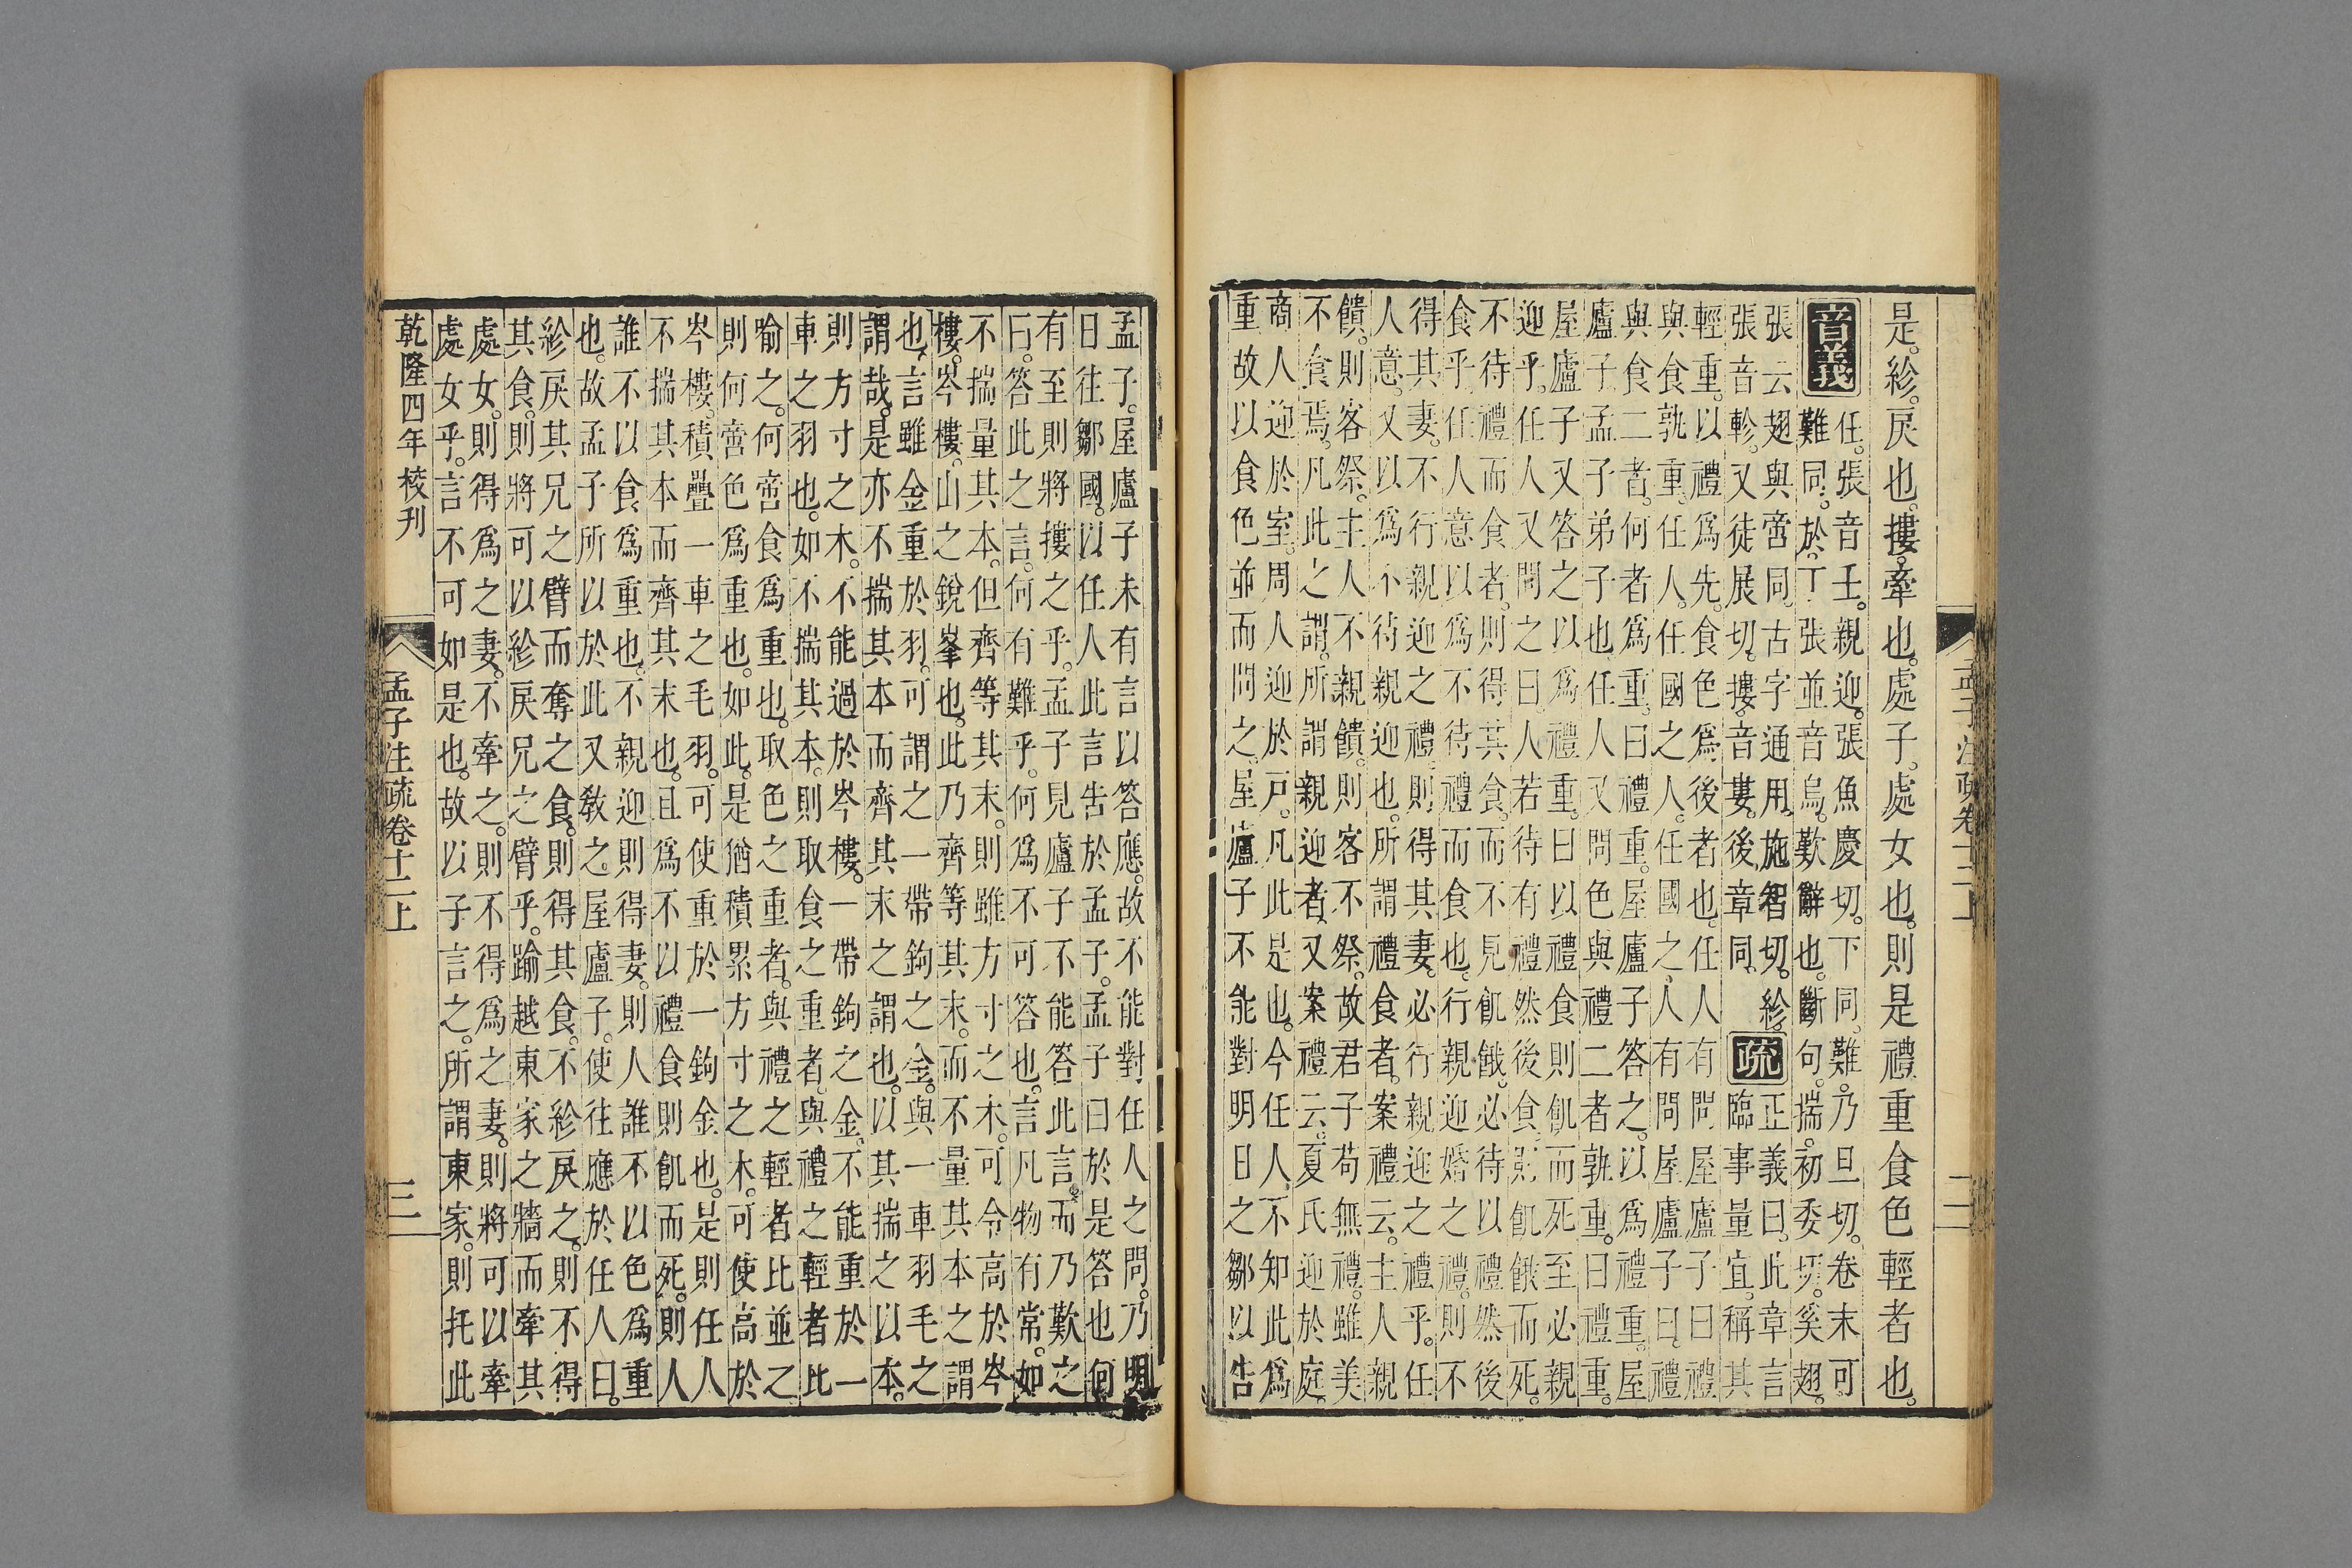 是。紾。戾也。摟。牽也。處子。處女也。則是禮重食色輕者也。
音義
任。張音壬。親迎。張魚慶切。下同。難。乃旦切。卷末可
難同。於。丁張並音烏歎辭也。斷句。揣。初委切。奚翅。
張云翅與啻同。古字通用。施智切。紾。
張音軫。又徒展切。摟。音婁。後章同。
疏
正義曰。此章言
臨事量宜。稱其
輕重。以禮爲先。食色爲後者也。任人有問屋廬子曰禮
與食孰重。任人。任國之人。任國之人有問屋廬子曰。禮
與食二者。何者爲重。曰禮重。屋廬子答之。以爲禮重。屋
廬子孟子弟子也任人又問色與禮二者孰重。曰禮重。
屋廬子又答之以爲禮重。曰以禮食則飢而死至必親
迎乎。任人又問之曰人若待有禮然後食。則飢餓而死。
不待禮而食者。則得其食。而不見飢餓。必待以禮然後
食乎任人意以爲不待禮而食也。行親迎婚之禮。則不
得其妻。不行親迎之禮。則得其妻。必行親迎之禮乎。任
人意。又以爲不待親迎也。所謂禮食者。案禮云。主人親
饋。則客祭。主人不親饋。則客不祭。故君子苟無禮。雖美
不食焉。凡此之謂。所謂親迎者。又案禮云。夏氏迎於庭
商人迎於室。周人迎於戶。凡此是也。今任人不知此爲
重故以食色並而問之。屋廬子不能對明日之鄒以告
孟子注疏卷十二上
二
孟子。屋廬子未有言以答應。故不能對任人之問。乃明
日往鄒國。以任人此言告於孟子。孟子曰於是答也何
有至則將摟之乎。孟子見廬子不能答此言。而乃歎之
曰。答此之言。何有難乎。何爲不可答也。言凡物有常。如
不揣量其本。但齊等其末。則雖方寸之木。可令高於岑
樓。岑樓。山之銳峯也。此乃齊等其末。而不量其本之謂
也。言雖金重於羽。可謂之一帶鉤之金。與一車羽毛之
謂哉。是亦不揣其本而齊其末之謂也。以其揣之以本。
則方寸之木。不能過於岑樓。一帶鉤之金。不能重於一
車之羽也。如不揣其本。則取食之重者。與禮之輕者比
喻之。何啻食爲重也。取色之重者。與禮之輕者比並之
則何啻色爲重也。如此。是猶積累方寸之木。可使高於
岑樓。積疊一車之毛羽。可使重於一鉤金也。是則任人
不揣其本而齊其末也。且爲不以禮食則飢而死。則人
誰不以食爲重也。不親迎則得妻。則人誰不以色爲重
也。故孟子所以於此又敎之。屋廬子。使往應於任人曰。
紾戾其兄之臂而奪之食。則得其食。不紾戾之。則不得
其食。則將可以紾戾兄之臂乎。踰越東家之牆而牽其
處女。則得爲之妻。不牽之。則不得爲之妻。則將可以牽
處女乎。言不可如是也。故以子言之。所謂東家。則托此
乾隆四年校刊
孟子注疏卷十二上
三